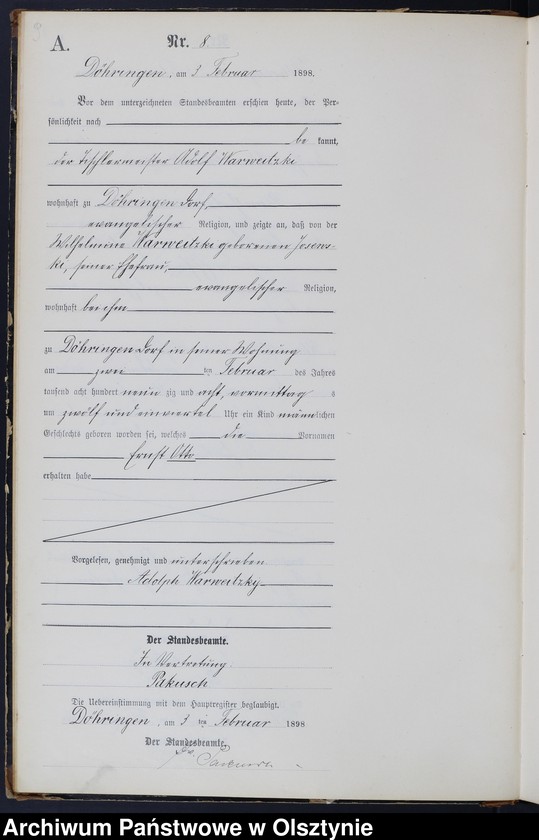 A.
Nr. 8
Döhringen, am 3 Februar 1898.
Vor dem unterzeichneten Standesbeamten erschien heute, der Per-
sönlichkeit nach
be kannt,
der Tischlermeister Adolf Warweitzki
wohnhaft zu Döhringen Dorf,
evangelischer Religion, und zeigte an, daß von der
Wilhelmine Warweitzki geborenen
ki, seiner Ehefrau,
evangelischer Religion,
wohnhaft bei ihm
zu Döhringen Dorf in seiner Wohnung
am zwei ten Februar des Jahres
tausend acht hundert neun zig und acht, vormittag s
um zwölf und einviertel Uhr ein Kind männlichen
Geschlechts geboren worden sei, welches die Vornamen
Ernst Otto
erhalten habe
Vorgelesen, genehmigt und unterschrieben
Adolph Warweitzky
Der Standesbeamte.
In Vertretung.
Pakusch
Die Uebereinstimmung mit dem Hauptregister beglaubigt.
Döhringen, am 3 ten Februar 1898
Der Standesbeamte.
Archiwum Państwowe w Olsztynie